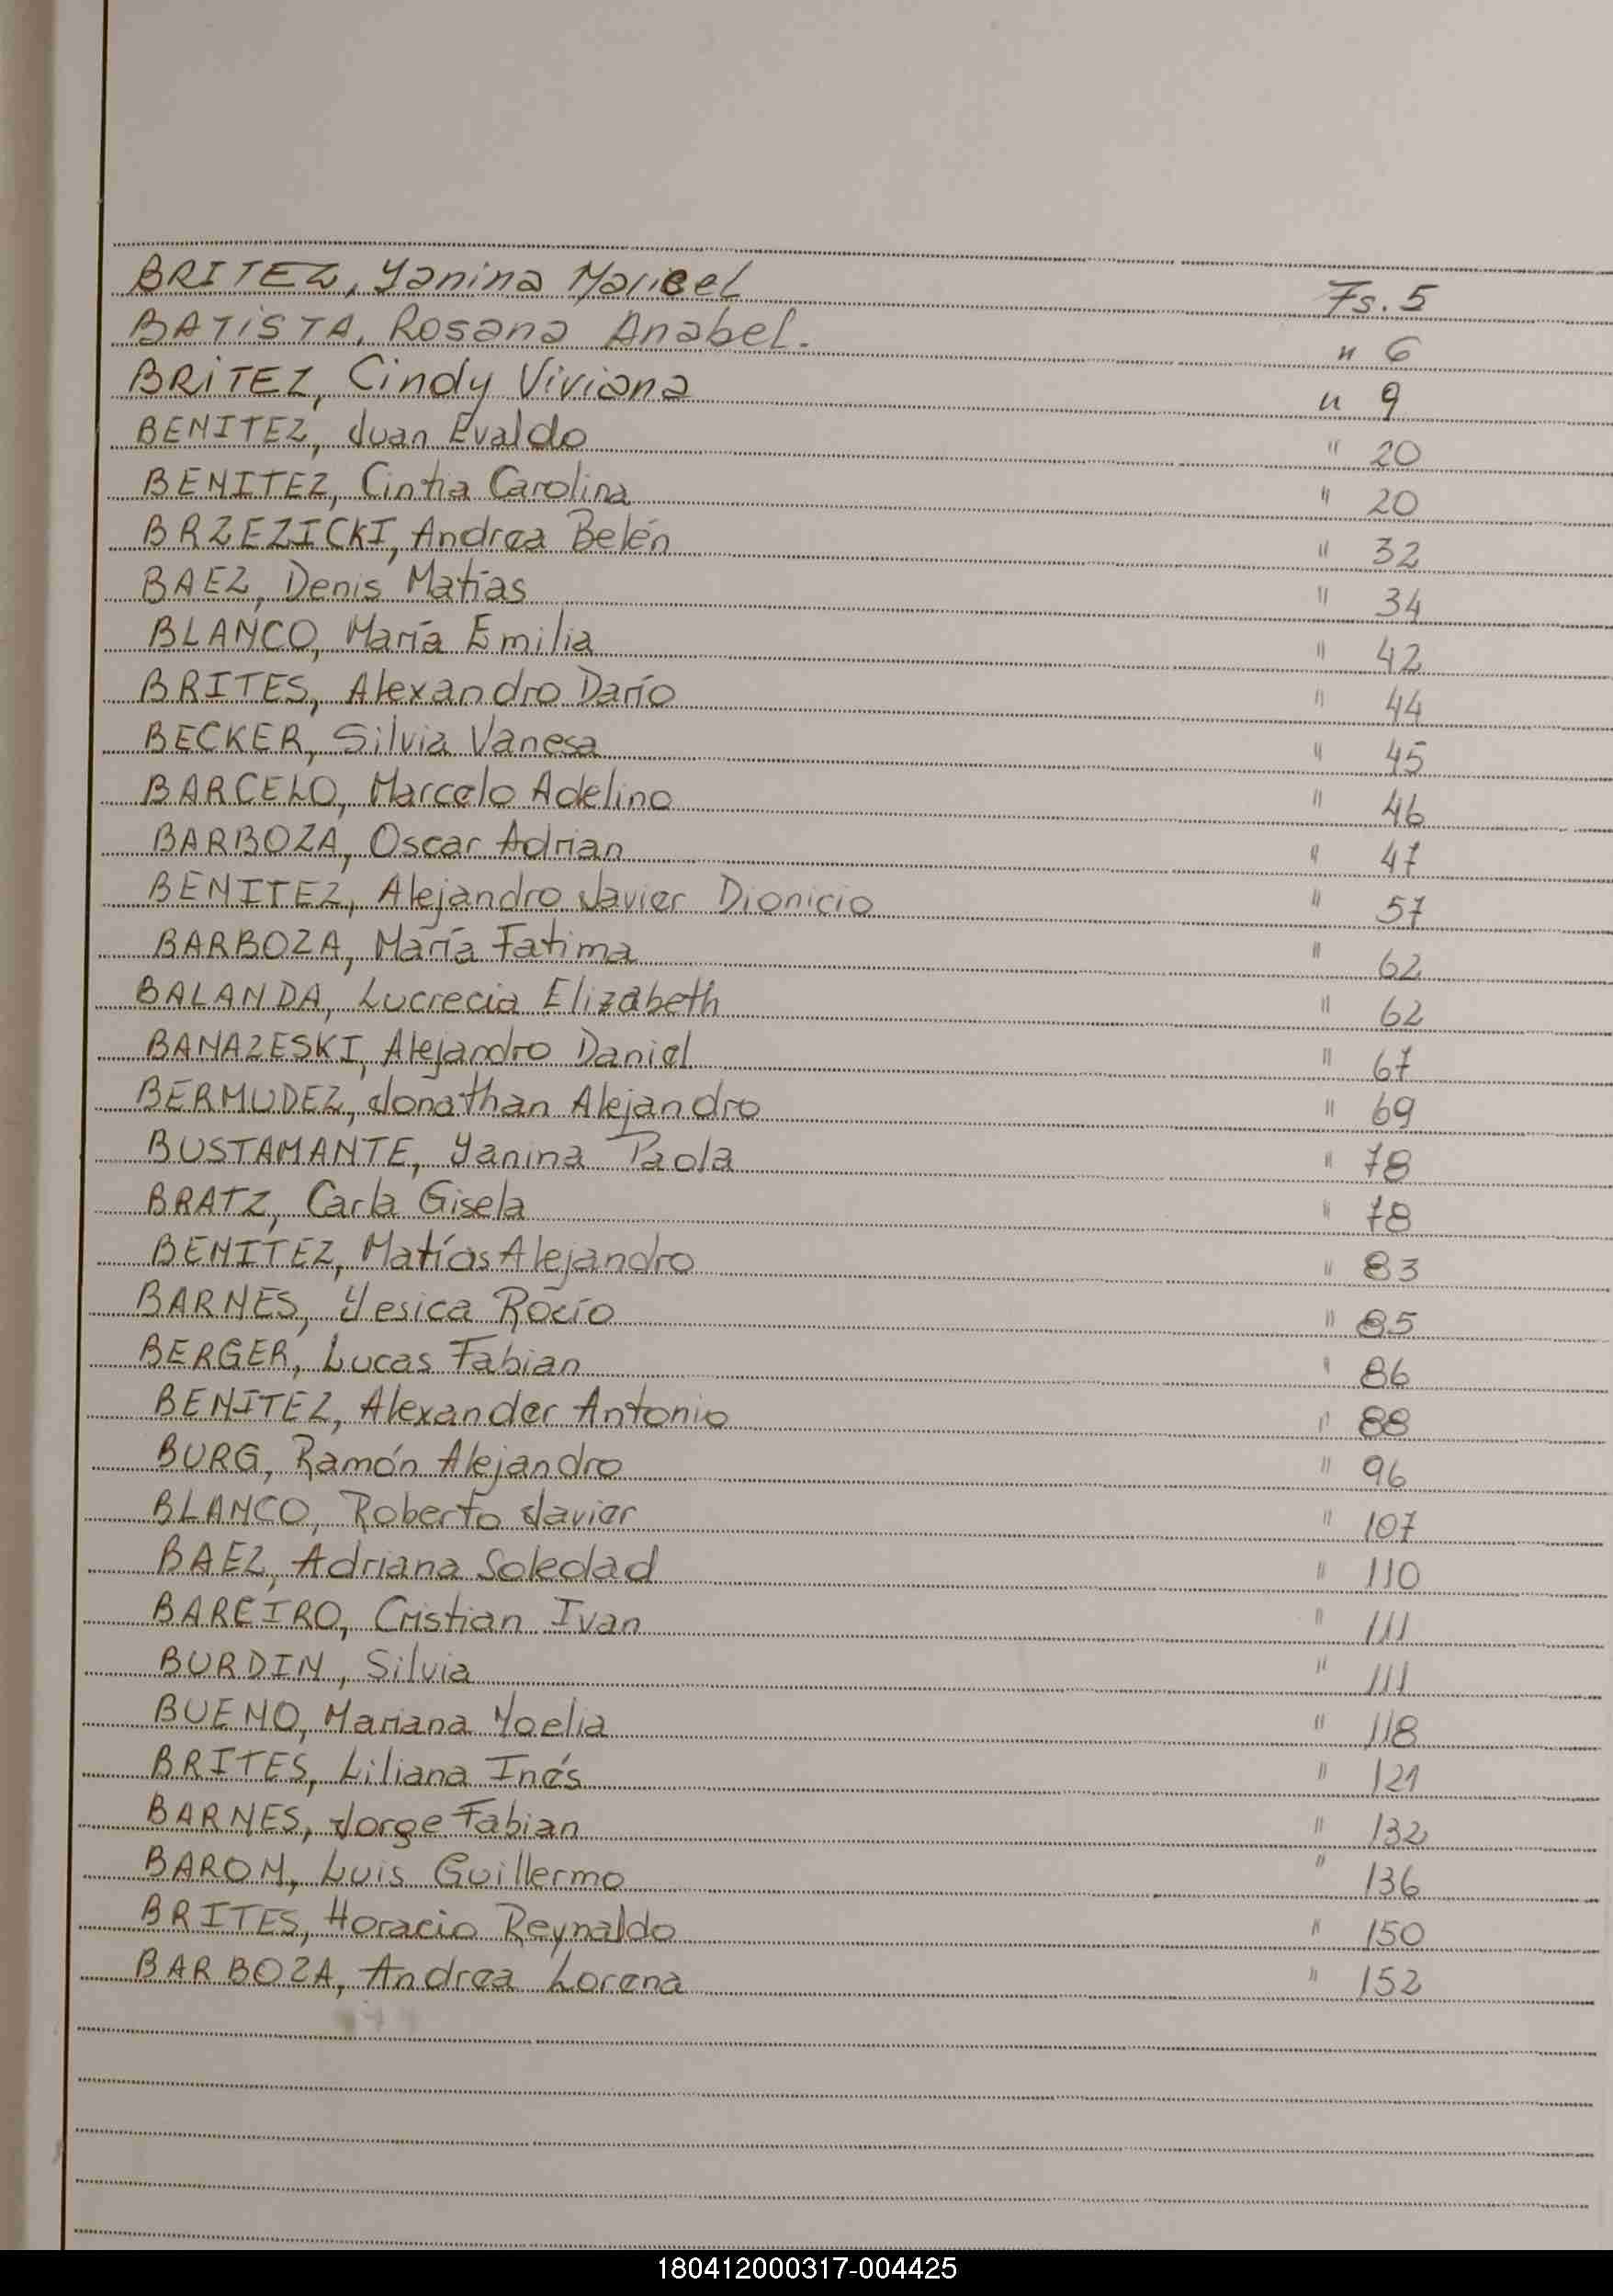 BRITEZ, Yanina Maricel Fs. 5
BATISTA, Rosana Anabel. " 6
BRITEZ, Cindy Viviana " 9
BENITEZ, Juan Evaldo " 20
BENITEZ, Cintia Carolina " 20
BRZEZICKI, Andrea Belén " 32
BAEZ, Denis Matías " 34
BLANCO, María Emilia " 42
BRITES, Alexandro Darío " 44
BECKER, Silvia Vanesa " 45
BARCELO, Marcelo Adelino " 46
BARBOZA, Oscar Adrian " 47
BENITEZ, Alejandro Javier Dionicio " 57
BARBOZA, María Fatima " 62
BALANDA, Lucrecia Elizabeth " 62
BANAZESKI, Alejandro Daniel " 67
BERMUDEZ, Jonathan Alejandro " 69
BUSTAMANTE, Yanina Paola " 78
BRATZ, Carla Gisela " 78
BENÍTEZ, Matías Alejandro " 83
BARNES, Yesica Rocío " 85
BERGER, Lucas Fabian " 86
BENITEZ, Alexander Antonio " 88
BURG, Ramón Alejandro " 96
BLANCO, Roberto Javier " 107
BAEZ, Adriana Soledad " 110
BAREIRO, Cristian Ivan " 111
BURDIN, Silvia " 111
BUENO, Mariana Noelia " 118
BRITES, Liliana Inés " 121
BARNES, Jorge Fabian " 132
BARON, Luis Guillermo " 136
BRITES, Horacio Reynaldo " 150
BARBOZA, Andrea Lorena " 152
180412000317-004425